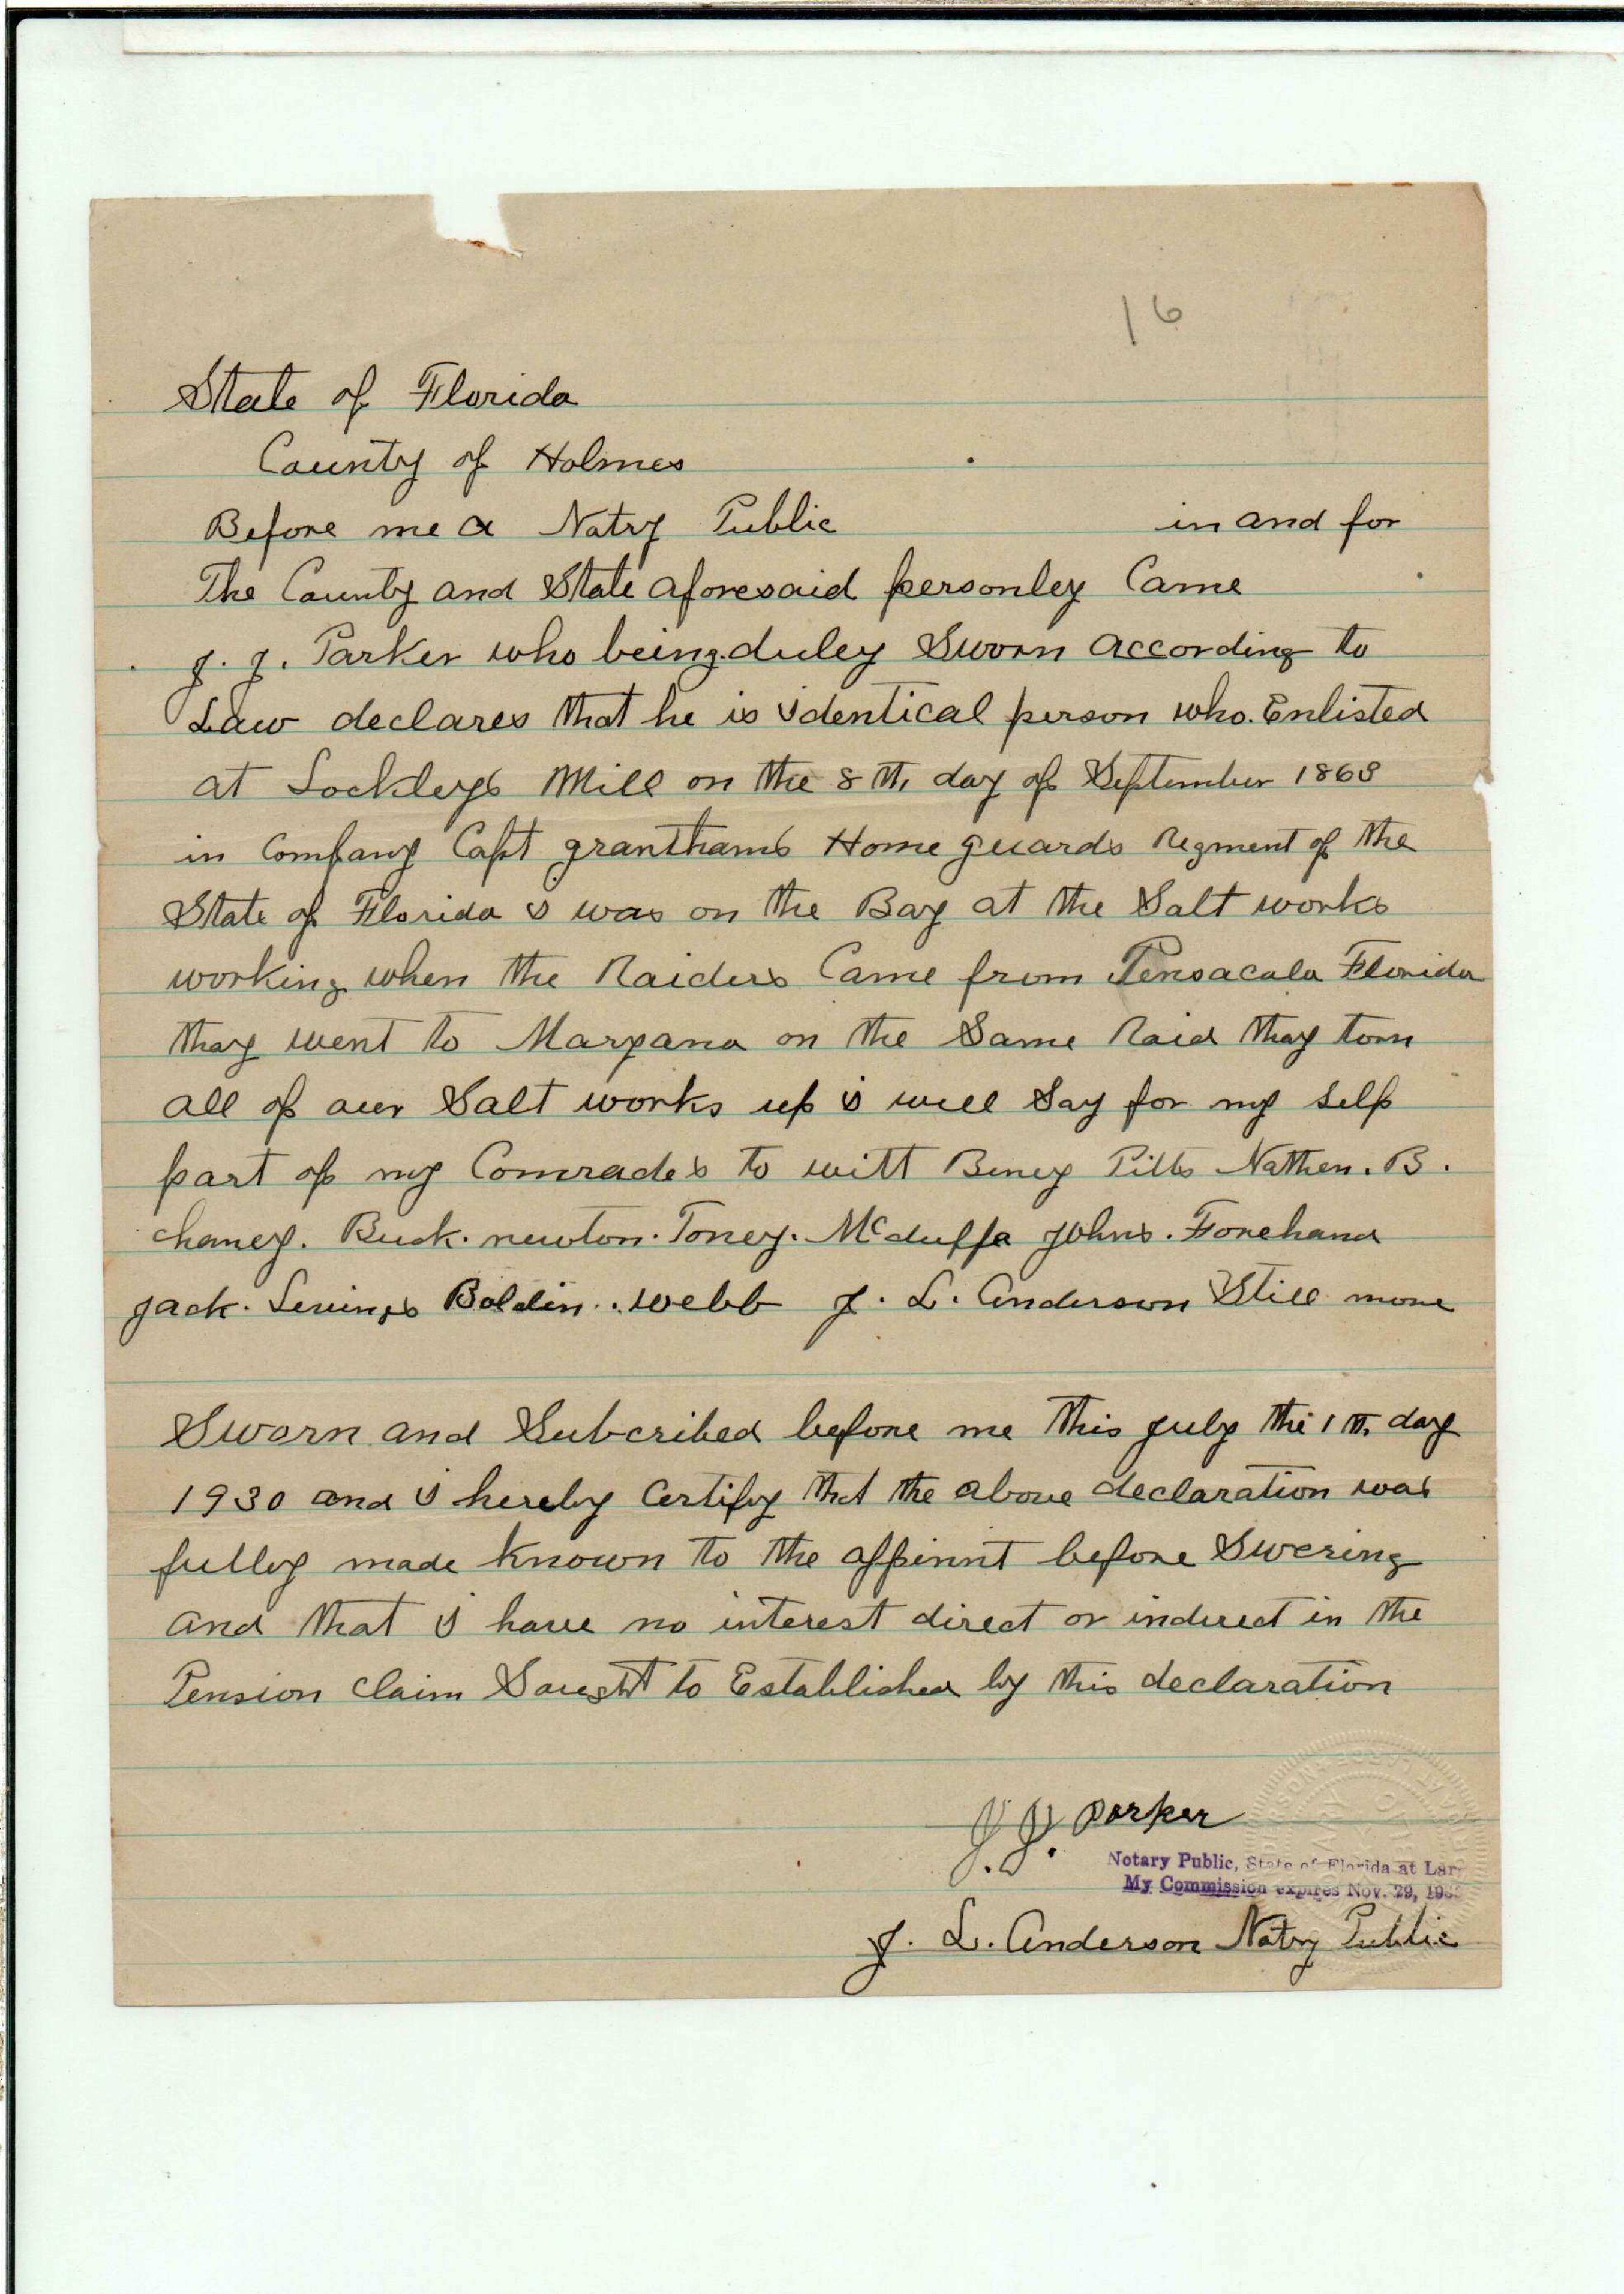 16
State of Florida
County of Holmes
Before me a Notry Public in and for
The County and State aforesaid personley Came
J. J. Parker who being duley Sworn according to
Law declares that he is identical person who. Enlisted
at Lockleys Mill on the 8th day of September 1863
in Company Capt granthams Home guards Regment of the
State of Florida i was on the Bay at the Salt works
working when the Raiders Came from Pensacola Florida
thay went to Maryana on the Same Raid thay torn
all of our Salt works up i will Say for my Self
part of my Comrades to witt Beney Pitts Nathen. B.
chaney. Buck. newton. Toney. McDuffa Johns. Forehand
Jack. Boldin.. webb J. L. Anderson Still more
Sworn and Subcribed before me this July the 1th day
1930 and i hereby Certify that the above declaration was
fulley made known to the affinnt before Swering
and that i have no interest direct or indirect in the
Pension claim Sought to Established by this declaration
J. J. Parker
Notary Public, State of Florida at Lar
My Commission expires Nov. 29, 193
J. L. Anderson Notry Public